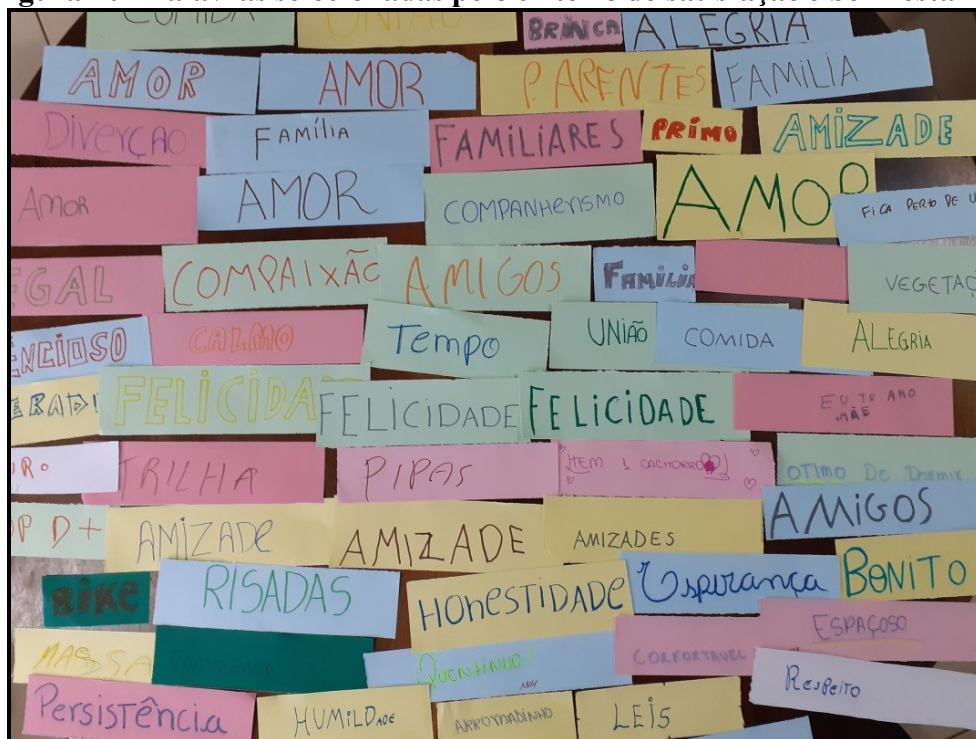 COMIDA
UNIÃO
BRINCA
ALEGRIA
AMOR
AMOR
PARENTES
FAMILIA
DiverçÃo
FAMÍLIA
FAMiLiARES
PRÍMO
AMiZADE
AMOR
AMOR
COMPANHerismo
AMOR
FiCA PERto DE U
EGAL
COMPAIXÃO
AMIGOS
FAMiLiA
VEGETAÇ
ENCIOSO
CALMO
Tempo
UNIÃO
COMIDA
ALEGRIA
ERADI
FELiCiDADE
FELiCiDADE
FELiCiDADE
EU TE AMO
MÃE
RO
TRILHA
PIPAS
TEM 1 CACHORRO!
OTIMO De Dormir
P D+
AMiZADe
AMIZADE
AMIZADES
AMiGOS
BIKE
RISADAS
HOnESTIDADE
Esperança
BONITO
ESPAÇOSO
MASSA
QUENTINHO!
CONFORTAVEL
ResPeito
Persistência
HUMiLDADE
ARRUMADINHO
LEiS